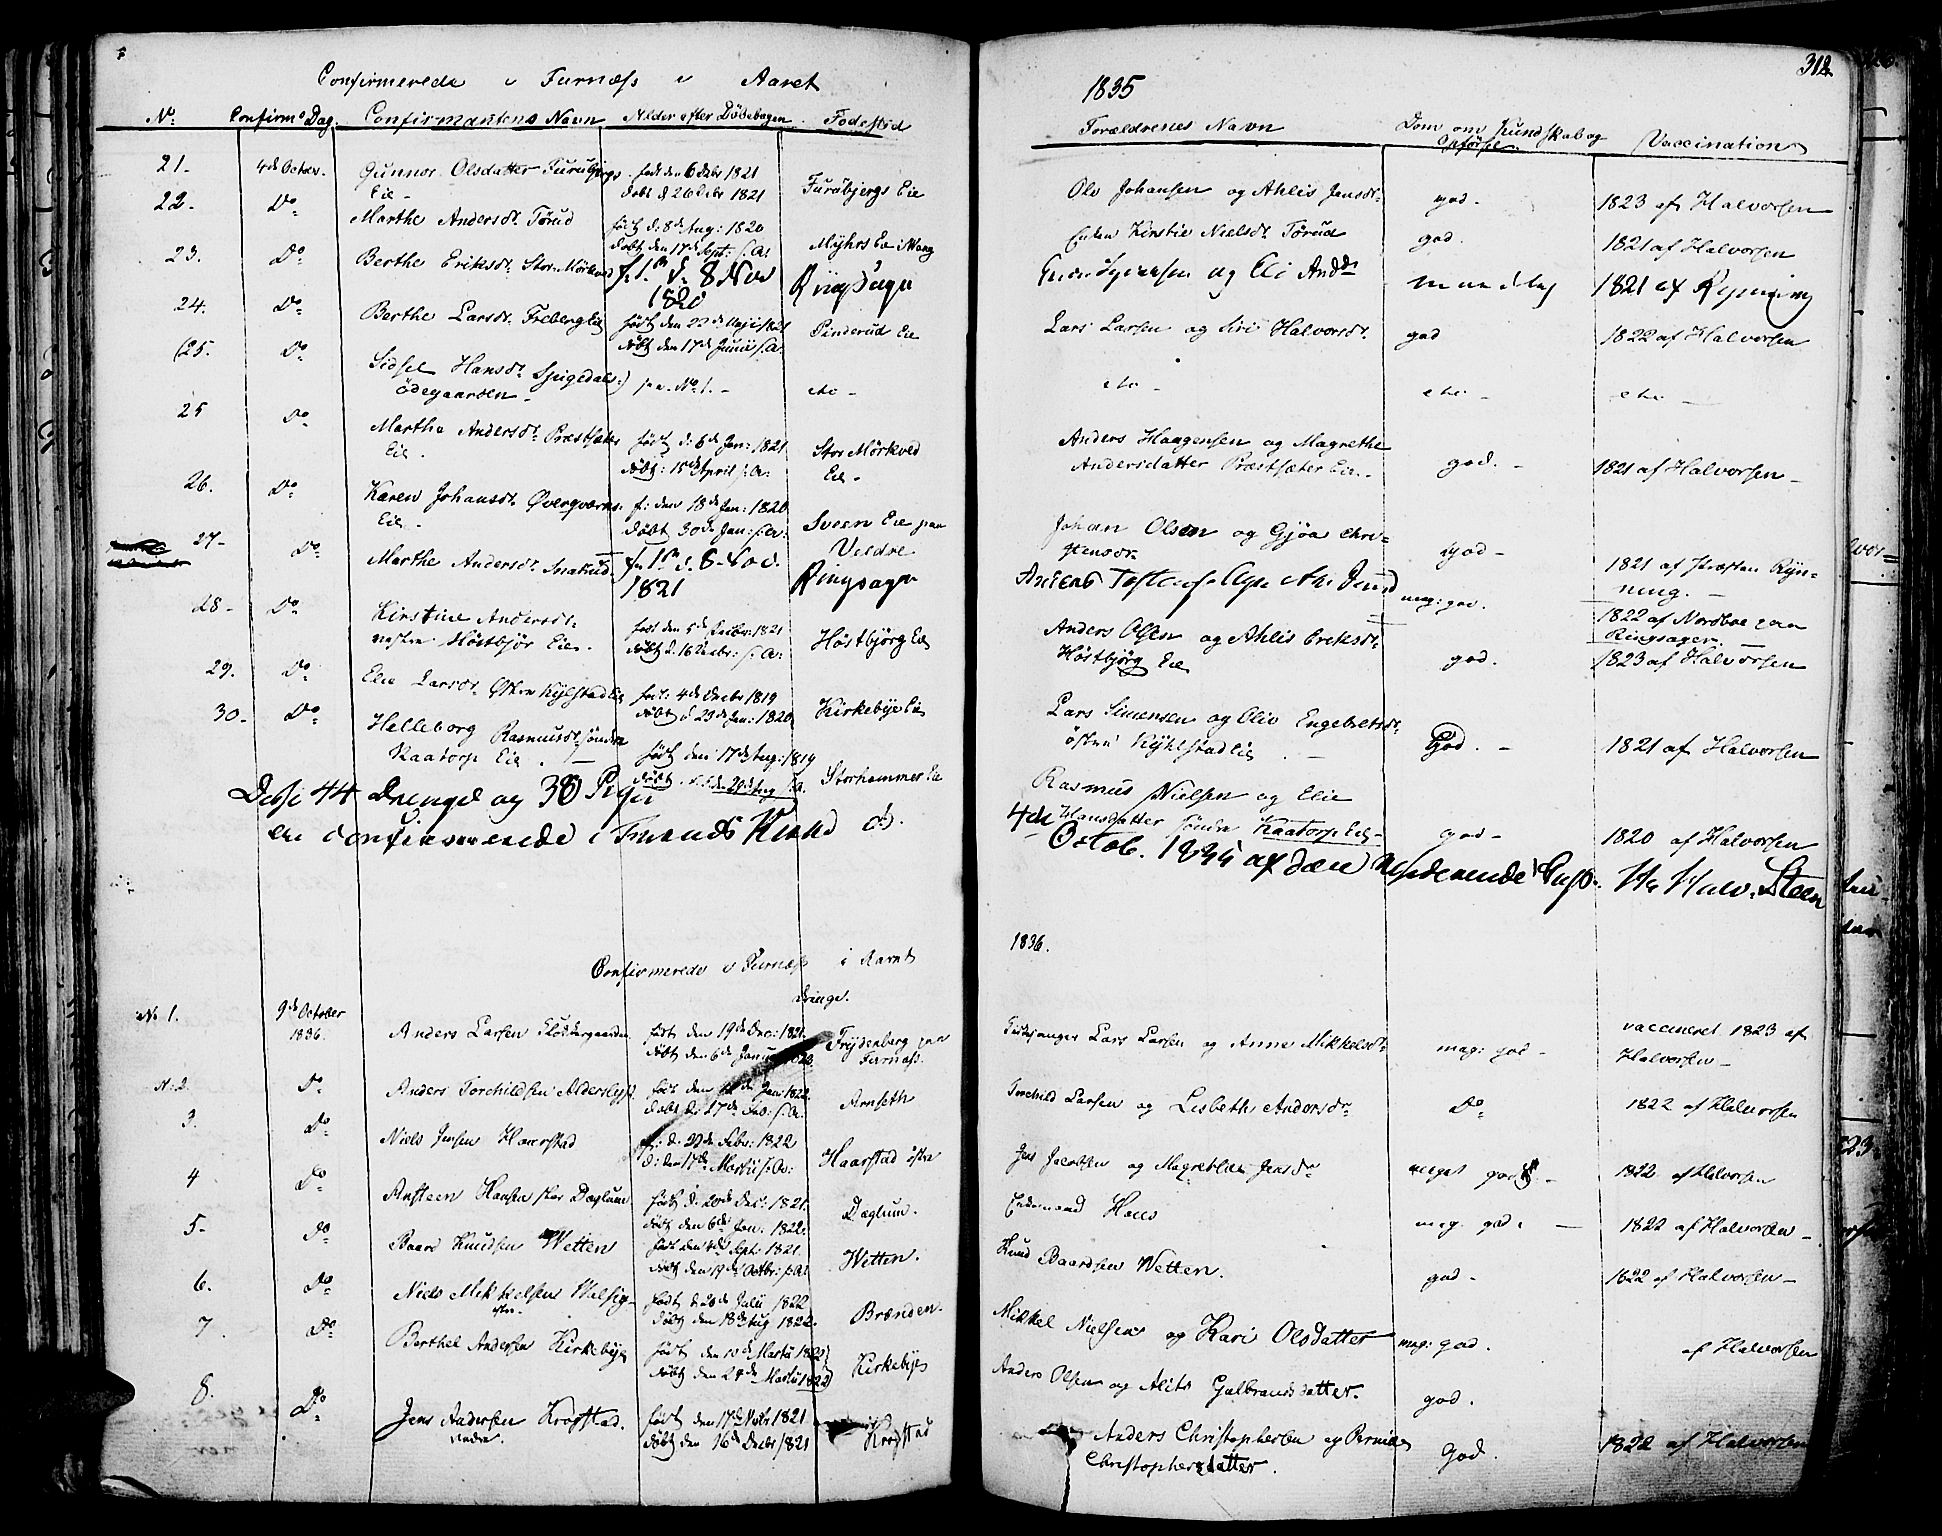 Confirmerede i Furnæss i Aaret 1835
312
No. Confirms Dag. Confirmantens Navn Alder efter Døbebogen Fødested
Forældrenes Navn Dom om Kundskab og Opførsel Vaccination
21. 4de Octobr. Gunnor Olsdatter Furubjergs Eie - født den 6 Debr 1821 døbt d. 26 Debr 1821 Furubjergs Eie
Ole Johansen og Ahlis Jensdt. god. 1823 af Halvorsen
22. Do Marthe Andersdt. Tørud født d: 8de Aug: 1820 døbt den 17de Sept: s.A: Myhrs Eie i Vang
Enken Kirstie Nielsdt. Tørud god. 1821 af Halvorsen
23. Do Berthe Eriksdt. Stor Mörkved 8 Nov 1820 Ringsager
og Eli 1821 af Rynning
24. Do Berthe Larsdt. Freberg Eie født den 22de Maji 1821 døbt den 17de Junii s.A: Pinderud Eie
Lars Larsen og Siri Halvorsdt. god 1822 af Halvorsen
(25. Do Sidsel Hansdt. Spigedals ödegaarden - ) No. 1. -
25 Do Marthe Andersdt. Præstsæter Eie. født d: 6de Jan: 1821 døbt: 15de April s.A: Stor Mørkved Eie.
Anders Haagensen og Magrethe Andersdatter Præstsæter Eie. god. - 1821 af Halvorsen -
26. Do Karen Johansdt. Øvergværns Eie. f: den 18de Jan: 1820 döbt 30de Jan: s:A: Sveen Eie paa Veldre
Johan Olsen og Gjøa Christensdr. God - 1821 af Præsten Rynning. -
27- Do Marthe Andersdt. Snakud 8 Nov. 1821 Ringsager
mag: god. 1822 af Nordboe paa Ringsager.
28- Do Kirstine Andersdt. nestre Höstbjör Eie. født den 5de Decbr: 1821 döbt d. 16 Decbr: s:A: Höstbjörg Eie
Anders Olsen og Ahlis Eriksdt. Höstbjörg Eie god. 1823 af Halvorsen
29. Do Elie Larsdt. Østre Kylstad Eie født: 4de Decbr 1819 döbt d 23de Jan: 1820 Kirkebye Eie
Lars Simensen og Oliv Engebretsdt. östre Kyhlstad Eie God. - 1821 af Halvorsen
30. Do Helleborg Rasmusdt. söndre Kaatorp Eie. født den 17de Aug: 1819 döbt den 29de Aug s.A. Storhammer Eie
Rasmus Nielsen og Elie Hansdatter söndre Kaatorp Eie - god - 1820 af Halvorsen
Disse 44 Drenge og 30 Piger ere confirmerede i Furnæs Kirke d. 4de Octob. 1835 af den Hr. Halv. Steen
Confirmerede i Furnæss i Aaret 1836.
Drenge.
No 1. 9de October 1836. Anders Larsen født den 19de Dec: 1821. döbt den 6de Januar Frydenberg paa Furnæss.
Lars Larsen og Anne Mikkelsdr. mag: god - vaccineret 1823 af Halvorsen -
N: 2. Do Anders Torchildsen Alderslyst født den Jan: 1822 döbt d: 17de Feb. s.A: Arnseth
Torchild Larsen og Lisbeth Andersdr. Do 1822 af Halvorsen
3. Do Niels Jensen Haarstad f: d. 22de Febr: 1822 d: den 17de Martii s:A: Haarstad östre
Jens Jacobsen og Magrethe Jensdr meget god - 1822 af Halvorsen
4 Do Ansteen Hansen stor Dæglum født d. 20de Dec: 1821. döbt den 6de Jan. 1822. Dæglum.
Enkemand Hans mag. god. - 1822 af Halvorsen -
5- Do Baard Knudsen Wetten født den 4de Sept: 1821. döbt den 19de Octbr: s:A: Wetten.
Knud Baardsen Wetten. god - 1822 af Halvorsen -
6. Do Niels Mikkelsen født d: 20de Julii 1822 döbt den 18de Aug 1822. Brænden.
Mikkel Nielsen og Kari Olsdatter mag: god. af Halvorsen
7. Do Berthel Andersen Kirkebye født den 10de Martii 1822 döbt den 24de Martii 1822 Kirkebye
Anders Olsen og Alits Gulbrandsdatter. god.
8. Do Jens Andersen Krogstad. nedre. født den 17de Novbr 1821 döbt den 16de Decbr 1821 Krogstad
Anders Christophersen og Pernille Christophersdatter. God. 1822 af Halvorsen